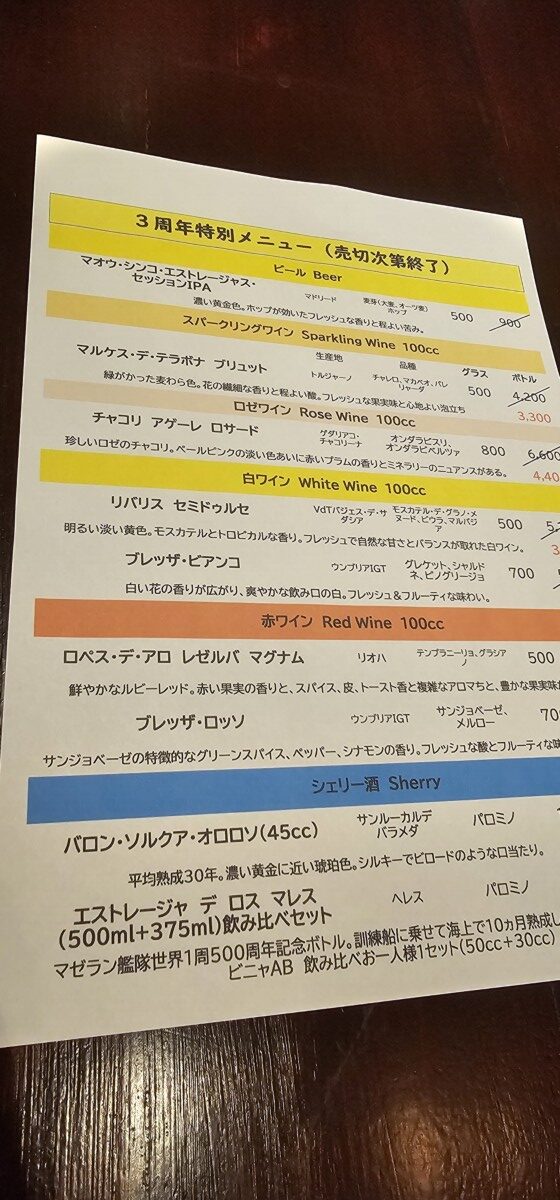 3周年特別メニュー（売切次第終了）
ビール Beer
マオウ・シンコ・エストレージャス・
セッションIPA
マドリード
麦芽（大麦、オーツ麦）
ホップ
500 900
濃い黄金色。ホップが効いたフレッシュな香りと程よい苦み。
スパークリングワイン Sparkling Wine 100cc
生産地 品種 グラス ボトル
マルケス・デ・テラボナ ブリュット
トルジャーノ
チャレロ、マカベオ、パレ
リャーダ
500 4,200
緑がかった麦わら色。花の繊細な香りと程よい酸。フレッシュな果実味と心地よい泡立ち
3,300
ロゼワイン Rose Wine 100cc
チャコリ アゲーレ ロサード
ゲダリアコ・
チャコリーナ
オンダラビスリ、
オンダラベルツァ
800 6,600
珍しいロゼのチャコリ。ペールピンクの淡い色あいに赤いプラムの香りとミネラリーのニュアンスがある。
4,40
白ワイン White Wine 100cc
リバリス セミドゥルセ
VdTバジェス・デ・サ
ダシア
モスカテル・デ・グラノ・メ
ヌード、ビウラ、マルバジ
ア
500
明るい淡い黄色。モスカテルとトロピカルな香り。フレッシュで自然な甘さとバランスが取れた白ワイン。
ブレッザ・ビアンコ
ウンブリアIGT
グレケット、シャルド
ネ、ピノグリージョ
700
白い花の香りが広がり、爽やかな飲み口の白。フレッシュ＆フルーティな味わい。
赤ワイン Red Wine 100cc
ロペス・デ・アロ レゼルバ マグナム
リオハ
テンプラニーリョ、グラシア
ノ
500
鮮やかなルビーレッド。赤い果実の香りと、スパイス、皮、トースト香と複雑なアロマちと、豊かな果実味が
ブレッザ・ロッソ
ウンブリアIGT
サンジョベーゼ、
メルロー
70
サンジョベーゼの特徴的なグリーンスパイス、ペッパー、シナモンの香り。フレッシュな酸とフルーティな味
シェリー酒 Sherry
バロン・ソルクア・オロロソ(45cc)
サンルーカルデ
バラメダ
パロミノ
平均熟成30年。濃い黄金に近い琥珀色。シルキーでビロードのような口当たり。
エストレージャ デ ロス マレス
(500ml+375ml)飲み比べセット
ヘレス
パロミノ
マゼラン艦隊世界1周500周年記念ボトル。訓練船に乗せて海上で10ヵ月熟成し
ビニャAB 飲み比べお一人様1セット(50cc+30cc)